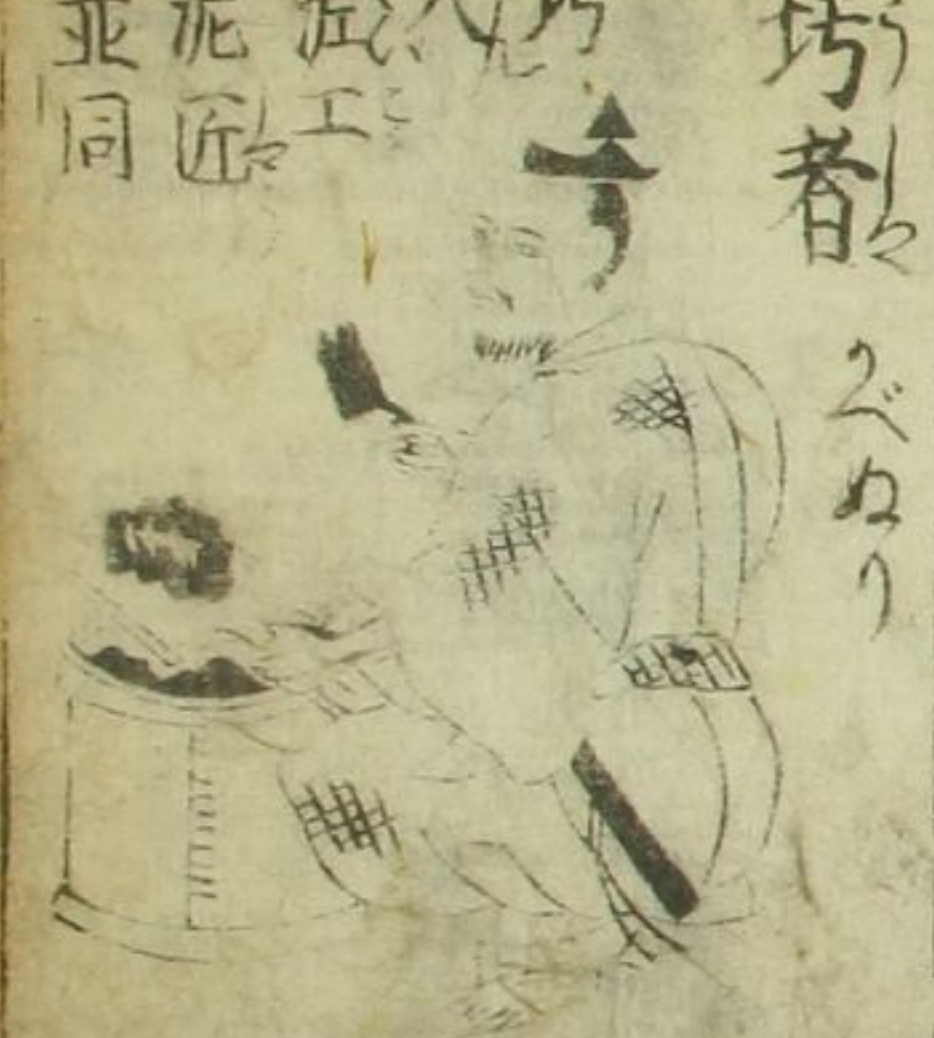 圬者
うしや
かべぬり
泥工
泥匠
並同